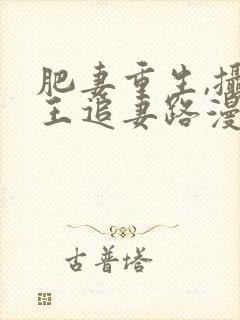 肥妻重生,攝
王追妻路漫
古普塔